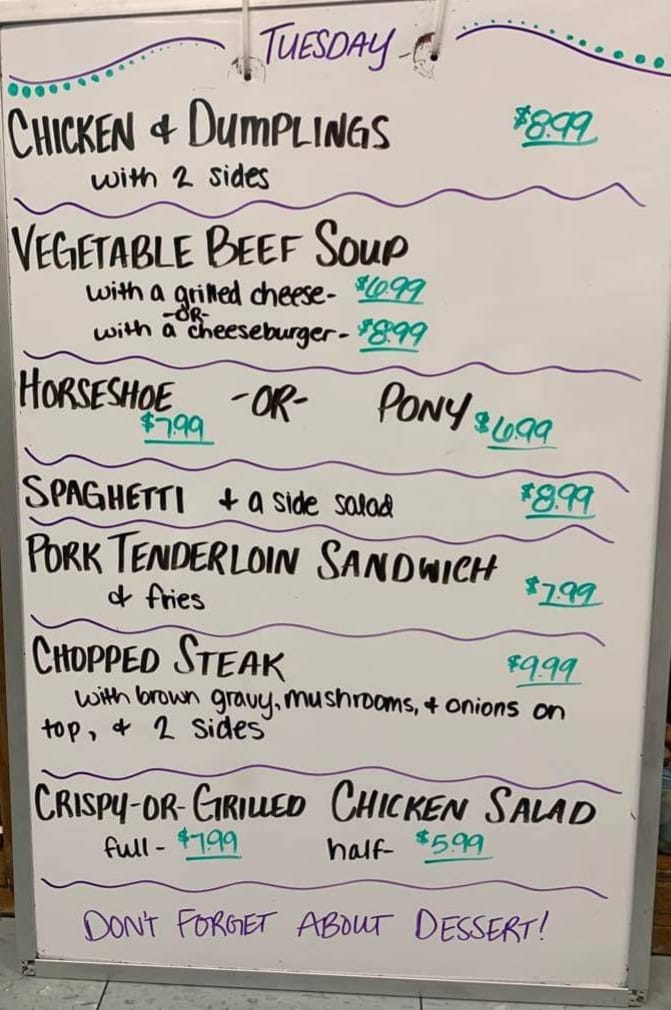 TUESDAY
CHICKEN & DUMPLINGS $8.99
with 2 sides
VEGETABLE BEEF SOUP
with a grilled cheese- $6.99
-OR-
with a cheeseburger- $8.99
HORSESHOE -OR- PONY
$7.99 $6.99
SPAGHETTI + a side salad $8.99
PORK TENDERLOIN SANDWICH
& fries $7.99
CHOPPED STEAK $9.99
with brown gravy, mushrooms, & onions on
top, & 2 sides
CRISPY-OR-GRILLED CHICKEN SALAD
full- $7.99 half- $5.99
DON'T FORGET ABOUT DESSERT!